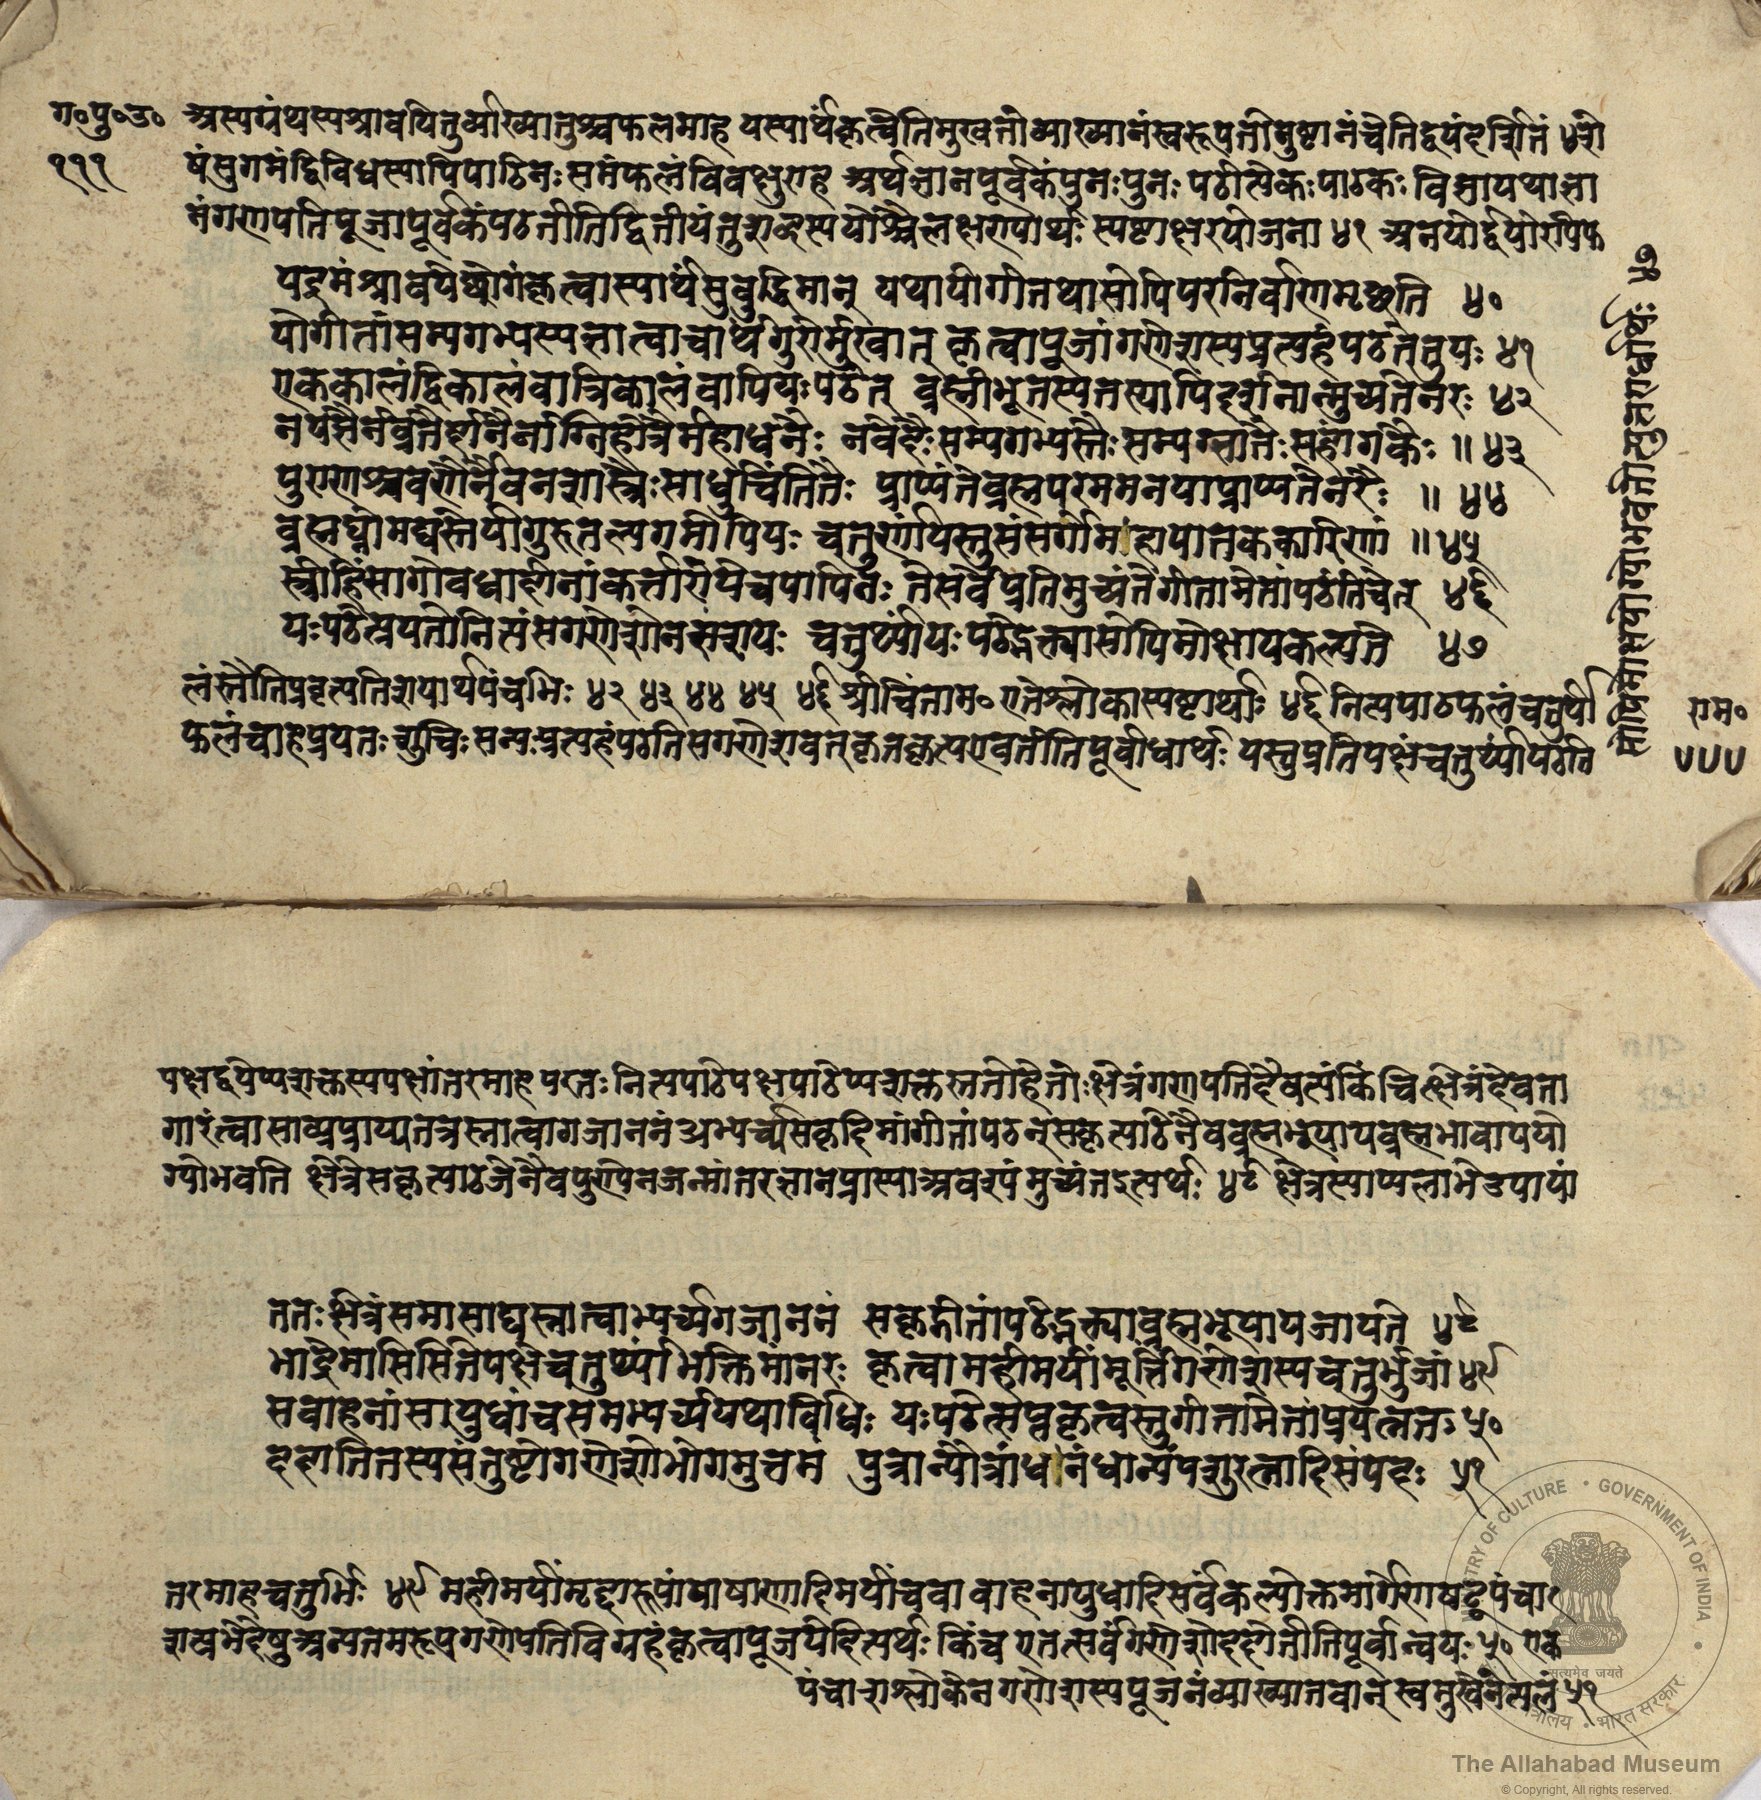 ग॰पु॰उ॰
१११
अस्यग्रंथस्यश्रावयितुर्व्याख्यातुश्चफलमाह यस्यार्थंकृत्वेतिमुखतोव्याख्यानंस्वरूपतोनुष्टानंचेतिद्वयंदर्शितं ४॰शे
षंसुगमंद्विविधस्यापिपाठिनःसमंफलंविवक्षुराह अर्थज्ञानपूर्वकंपुनःपुनः पठतीत्येकःपाठकः विनायथाज्ञा
नंगणपतिपूजापूर्वकंपठतीतिद्वितीयंतुशब्दस्ययोश्चैलक्षण्यार्थः स्पष्टाक्षरयोजना ४१ अनयोर्द्वयोरपिफ
यइमंश्रावयेद्योगंकृत्वास्यार्थंसुबुद्धिमान् यथायोगीतथासोपिपरनिर्वाणमृछति ४०
योगीतांसम्यगभ्यस्यज्ञात्वाचार्थंगुरोर्मुखात् कृत्वापूजांगणेशस्यप्रत्यहंपठतेतुयः ४१
एककालंद्विकालंवात्रिकालंवापियःपठेत् ब्रह्मीभूतस्यतस्यापिदर्शनान्मुच्यतेनरः ४२
नयज्ञैर्नव्रतैर्दानैर्नाग्निहोत्रैर्महाधनैः नवेदैःसम्यगभ्यस्तैःसम्यग्ज्ञातैःसहांगकैः ॥४३
पुराणश्रवणैर्नैवनशास्त्रैःसाधुचिंतितैः प्राप्यतेब्रह्मपरममनयाप्राप्यतेनरैः ॥ ४४
ब्रह्मघ्नोमद्यपस्तेयीगुरुतल्पगमोपियः चतुर्णांयस्तुसंसर्गीमहापातककारिणां ॥४५
स्त्रीहिंसागोवधादीनांकर्त्तारोयेचपापिनः तेसर्वेप्रतिमुच्यंतेगीतामेतांपठंतिचेत् ४६
यःपठेत्प्रयतोनित्यंसगणेशोनसंशयः चतुर्थ्यांयःपठेद्भक्त्यासोपिमोक्षायकल्पते ४७
सोपिमोक्षायोग्योभवतीत्युत्तरार्धार्थः ४७
लंस्तौतिप्रवृत्यतिशयार्थपंचभिः ४२ ४३ ४४ ४५ ४६ श्रीचिंताम॰ एतेश्लोकास्पष्टार्थाः ४६ नित्यपाठफलंचतुर्थी
फलंचाहप्रयतः शुचिः सन्यःप्रत्यहंपठतिसगणेशवत्कृतकृत्यएवेतीतिपूर्वार्धार्थः यस्तुप्रतिपक्षंचतुर्थ्यांपठति
राम॰
पक्षद्वयेप्यशक्तस्यपक्षांतरमाहपरतः नित्यपाठेपक्षपाठेप्यशक्तेस्ततोहेतोः क्षेत्रंगणपतिदैवत्यंकिंचित्क्षेत्रंदेवता
गारंत्वासाद्यप्राप्यतत्रस्नात्वागजाननंअभ्यर्च्यसकृदिमांगीतांपठन्सकृत्पाठेनैवब्रह्मभूयायब्रह्मभावाययो
ग्योभवति क्षेत्रेसकृत्पाठजेनैवपुण्येनजन्मांतरज्ञानप्राप्त्याअवश्यंमुच्यंतइत्यर्थः ४८ क्षेत्रस्याप्यलाभेउपायां
ततःक्षेत्रंसमासाद्यस्नात्वाभ्यर्च्यगजाननं सकृद्गीतांपठेद्भक्त्याब्रह्मभूयायजायते ४८
भाद्रेमासिसितेपक्षेचतुर्थ्यांभक्तिमांनरः कृत्वामहीमयींमूर्त्तिंगणेशस्यचतुर्भुजां ४९
सवाहनांसायुधांचसमभ्यर्च्ययथाविधिः यःपठेत्सप्तकृत्वस्तुगीतामेतांप्रयत्नतः ५०
ददातितस्यसंतुष्टोगणेशोभोगमुत्तमं पुत्रान्पौत्रांधनंधान्यंपशुरत्नादिसंपदः ५१
तरमाहचतुर्भिः ४९ महीमयींमृद्दारूपांपाषाणादिमयींचवावाहनायुधादिसर्वंकल्पोक्तमार्गेणषट्पंचा
शद्गर्भेदेषुअन्यतमरूपगणेपतिविग्रहंकृत्वापूजयेदित्यर्थः किंच एतत्सर्वंगणेशोददातीतिपूर्वान्वयः ५० एक
पंचाशश्लोकेनगणेशस्यपूजनंव्याख्यातवान् स्वमुखेनैत्यलं ५१
MINISTRY OF CULTURE • GOVERNMENT OF INDIA
सत्यमेव जयते
भारत सरकार
The Allahabad Museum
© Copyright, All rights reserved.